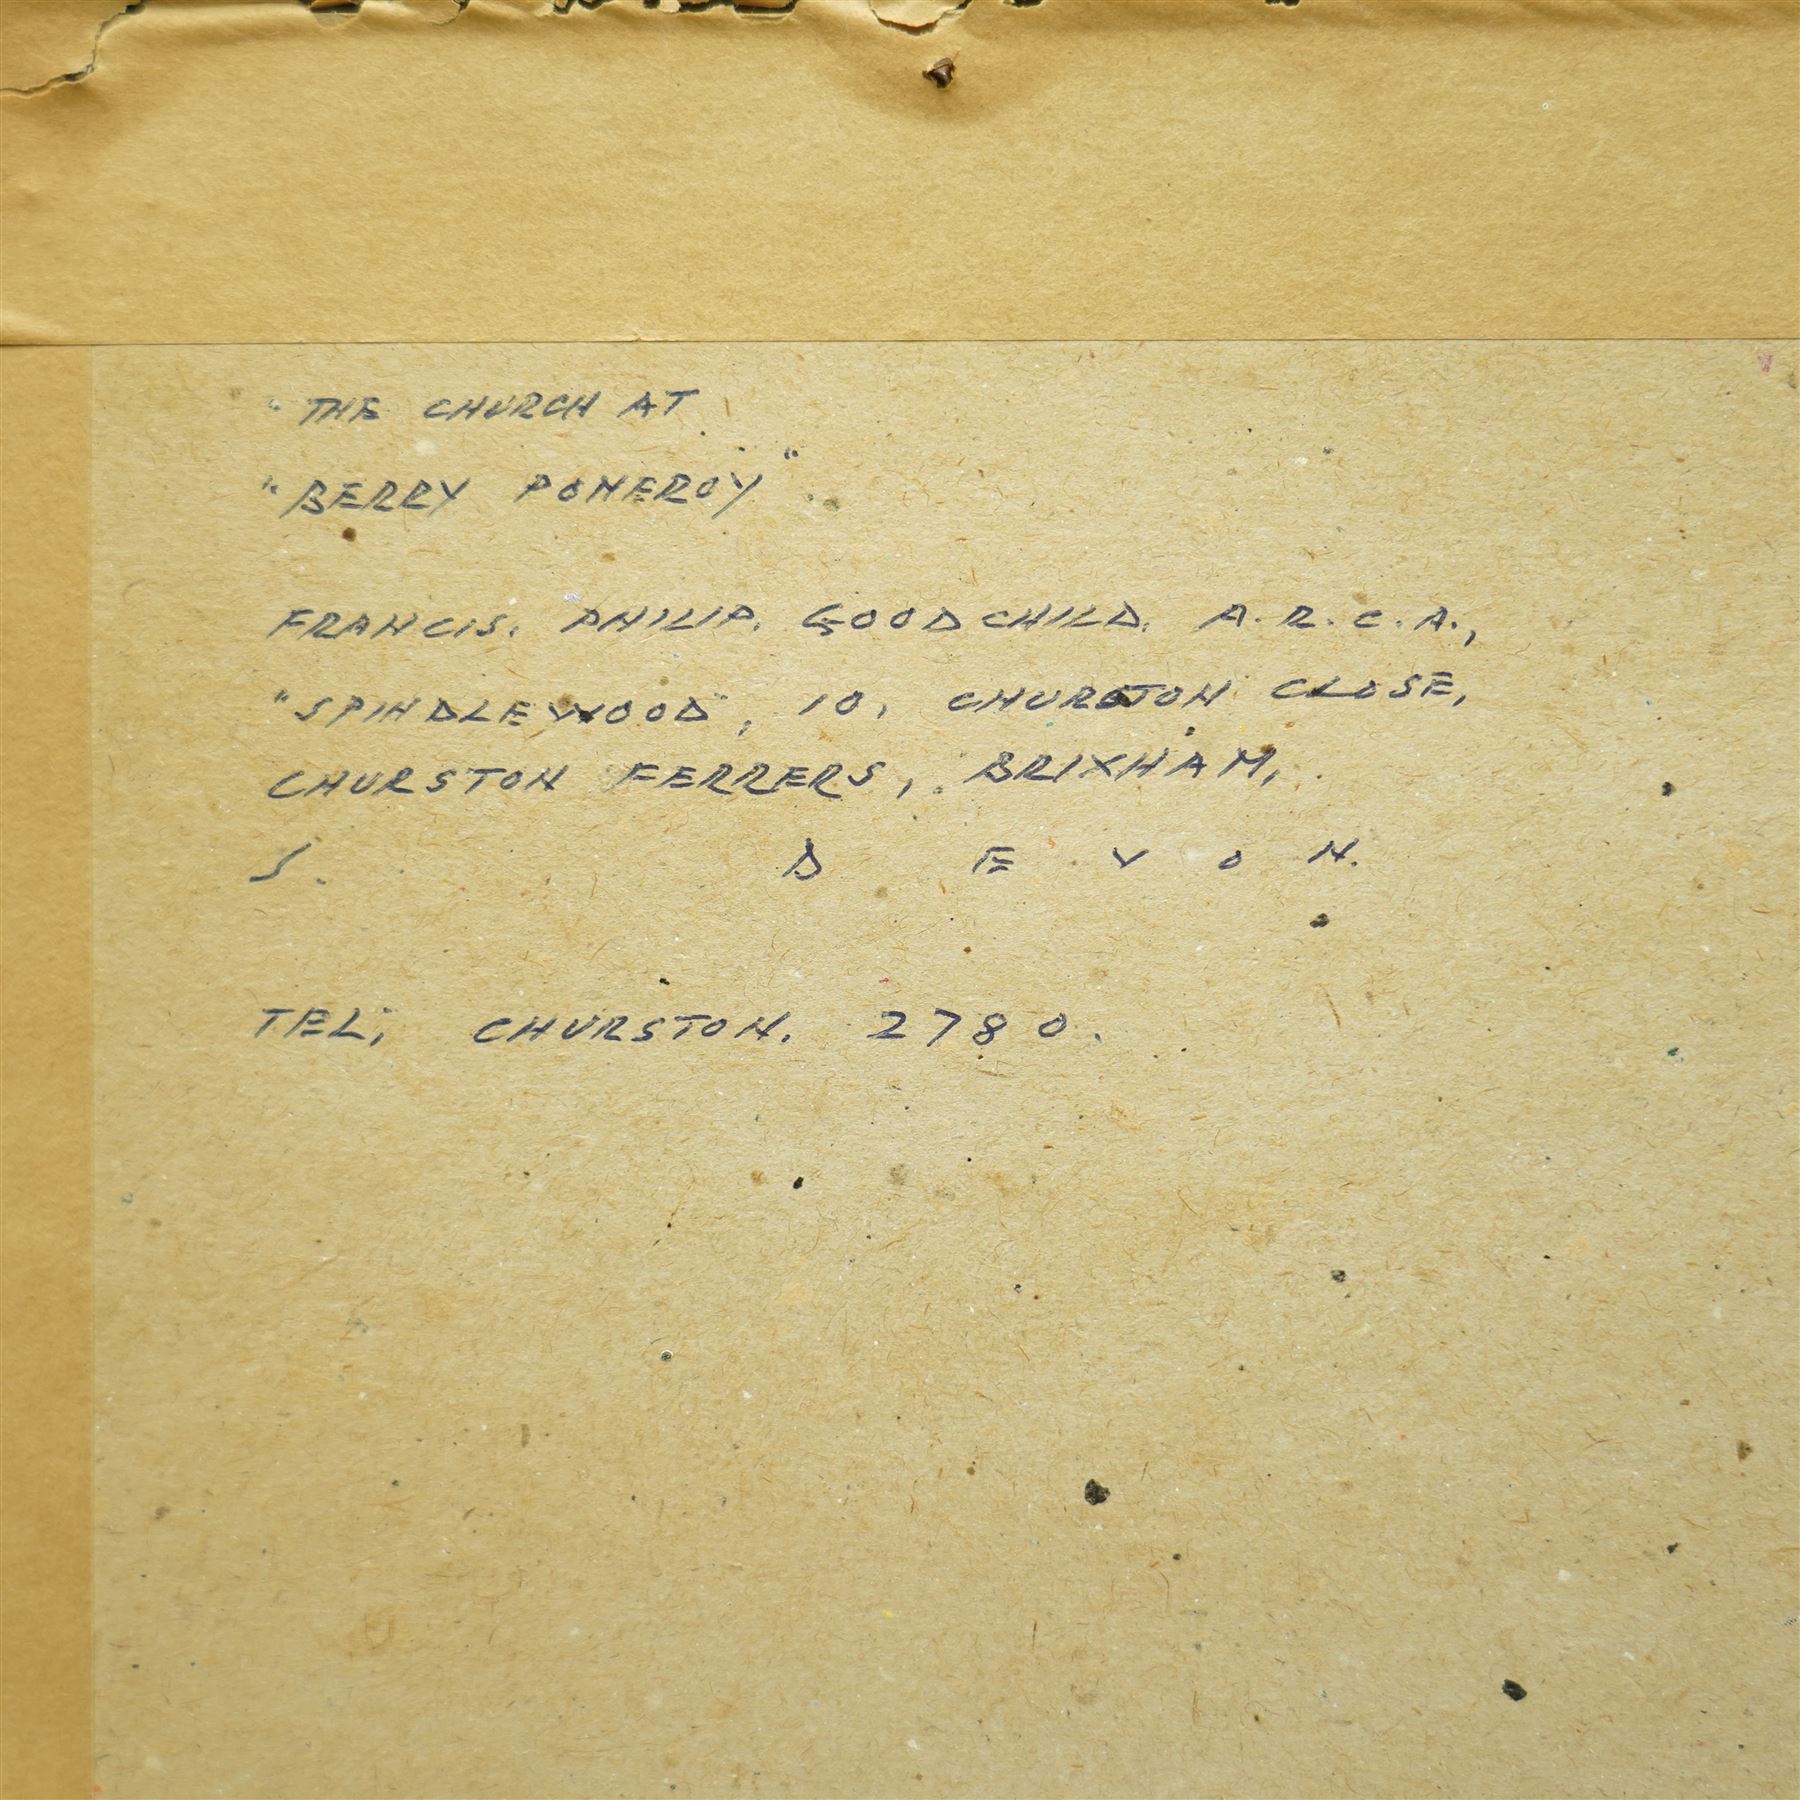 "THE CHURCH AT
"BERRY POMEROY".
FRANCIS. PHILIP. GOODCHILD. A.R.C.A.,
"SPINDLEWOOD", 10, CHURSTON CLOSE,
CHURSTON FERRERS, BRIXHAM,
S. DEVON.
TEL; CHURSTON. 2780.